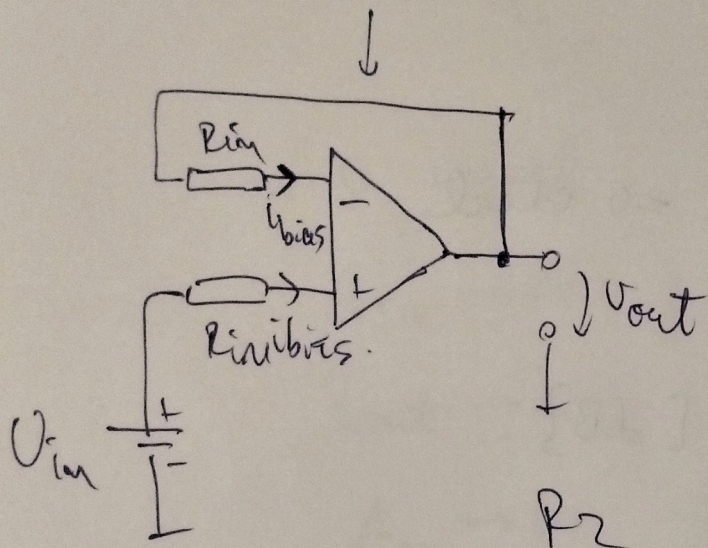 Rin
ibias
−
+
Rin ibias.
Uout
+
−
Uin
R2